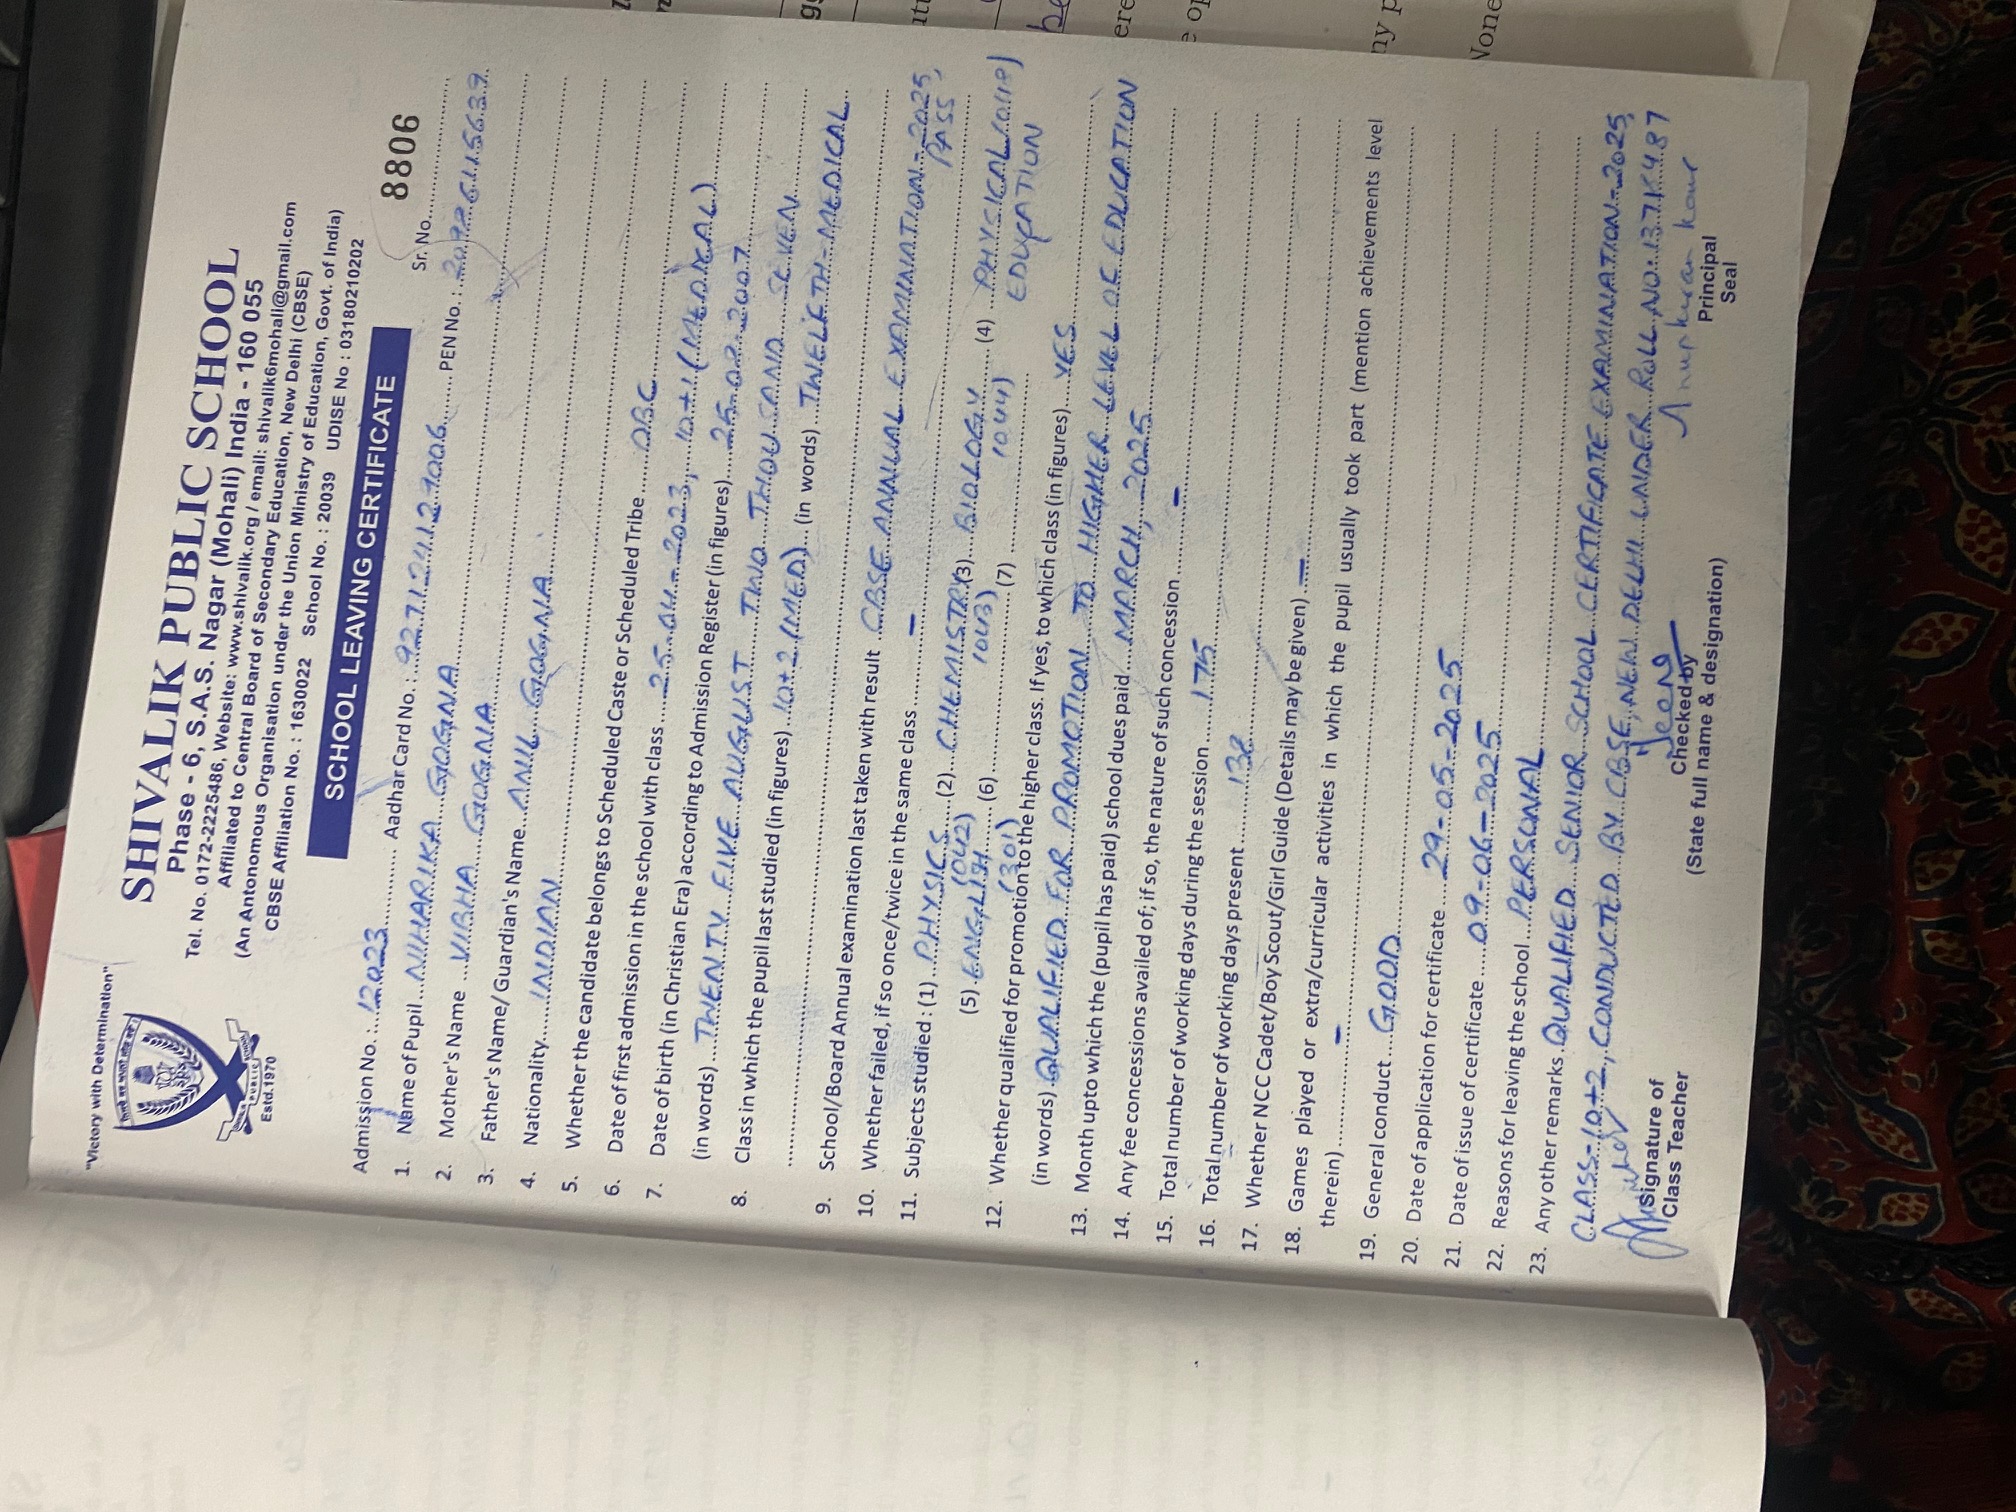 "Victory with Determination"
Estd.1970
SHIVALIK PUBLIC SCHOOL
Phase - 6, S.A.S. Nagar (Mohali) India - 160 055
Tel. No. 0172-2225486, Website: www.shivallk.org / email: shivalik6mohali@gmail.com
Affiliated to Central Board of Secondary Education, New Delhi (CBSE)
(An Autonomous Organisation under the Union Ministry of Education, Govt. of India)
CBSE Affiliation No. : 1630022 School No. : 20039 UDISE No : 03180210202
SCHOOL LEAVING CERTIFICATE
8806
Sr. No.
Admission No. : 12023 Aadhar Card No. : 927124127006 PEN No. :
1. Name of Pupil NIHARIKA GOGNA
2. Mother's Name VIBHA GOGNA
3. Father's Name/ Guardian's Name ANIL GOGNA
4. Nationality INDIAN
5. Whether the candidate belongs to Scheduled Caste or Scheduled Tribe OBC
6. Date of first admission in the school with class 25-04-2023, 10+1 (MEDICAL)
7. Date of birth (in Christian Era) according to Admission Register (in figures) 25-08-2007
(in words) TWENTY FIVE AUGUST TWO THOUSAND SEVEN
8. Class in which the pupil last studied (in figures) 10+2 (MED) (in words) TWELFTH-MEDICAL
9. School/Board Annual examination last taken with result CBSE ANNUAL EXAMINATION-2025, PASS
10. Whether failed, if so once/twice in the same class –
11. Subjects studied : (1) PHYSICS (042) (2) CHEMISTRY (043) (3) BIOLOGY (044) (4) PHYSICAL EDUCATION (048)
(5) ENGLISH (301) (6) (7)
12. Whether qualified for promotion to the higher class. If yes, to which class (in figures) YES
(in words) QUALIFIED FOR PROMOTION TO HIGHER LEVEL OF EDUCATION
13. Month upto which the (pupil has paid) school dues paid MARCH, 2025
14. Any fee concessions availed of; if so, the nature of such concession –
15. Total number of working days during the session 175
16. Total number of working days present 138
17. Whether NCC Cadet/Boy Scout/Girl Guide (Details may be given) –
18. Games played or extra/curricular activities in which the pupil usually took part (mention achievements level
therein) –
19. General conduct GOOD
20. Date of application for certificate 29-05-2025
21. Date of issue of certificate 09-06-2025
22. Reasons for leaving the school PERSONAL
23. Any other remarks QUALIFIED SENIOR SCHOOL CERTIFICATE EXAMINATION-2025,
CLASS-10+2, CONDUCTED BY CBSE, NEW DELHI UNDER ROLL NO: 13715487
Anupkiran Kaur
Signature of
Class Teacher
Checked by
(State full name & designation)
Principal
Seal